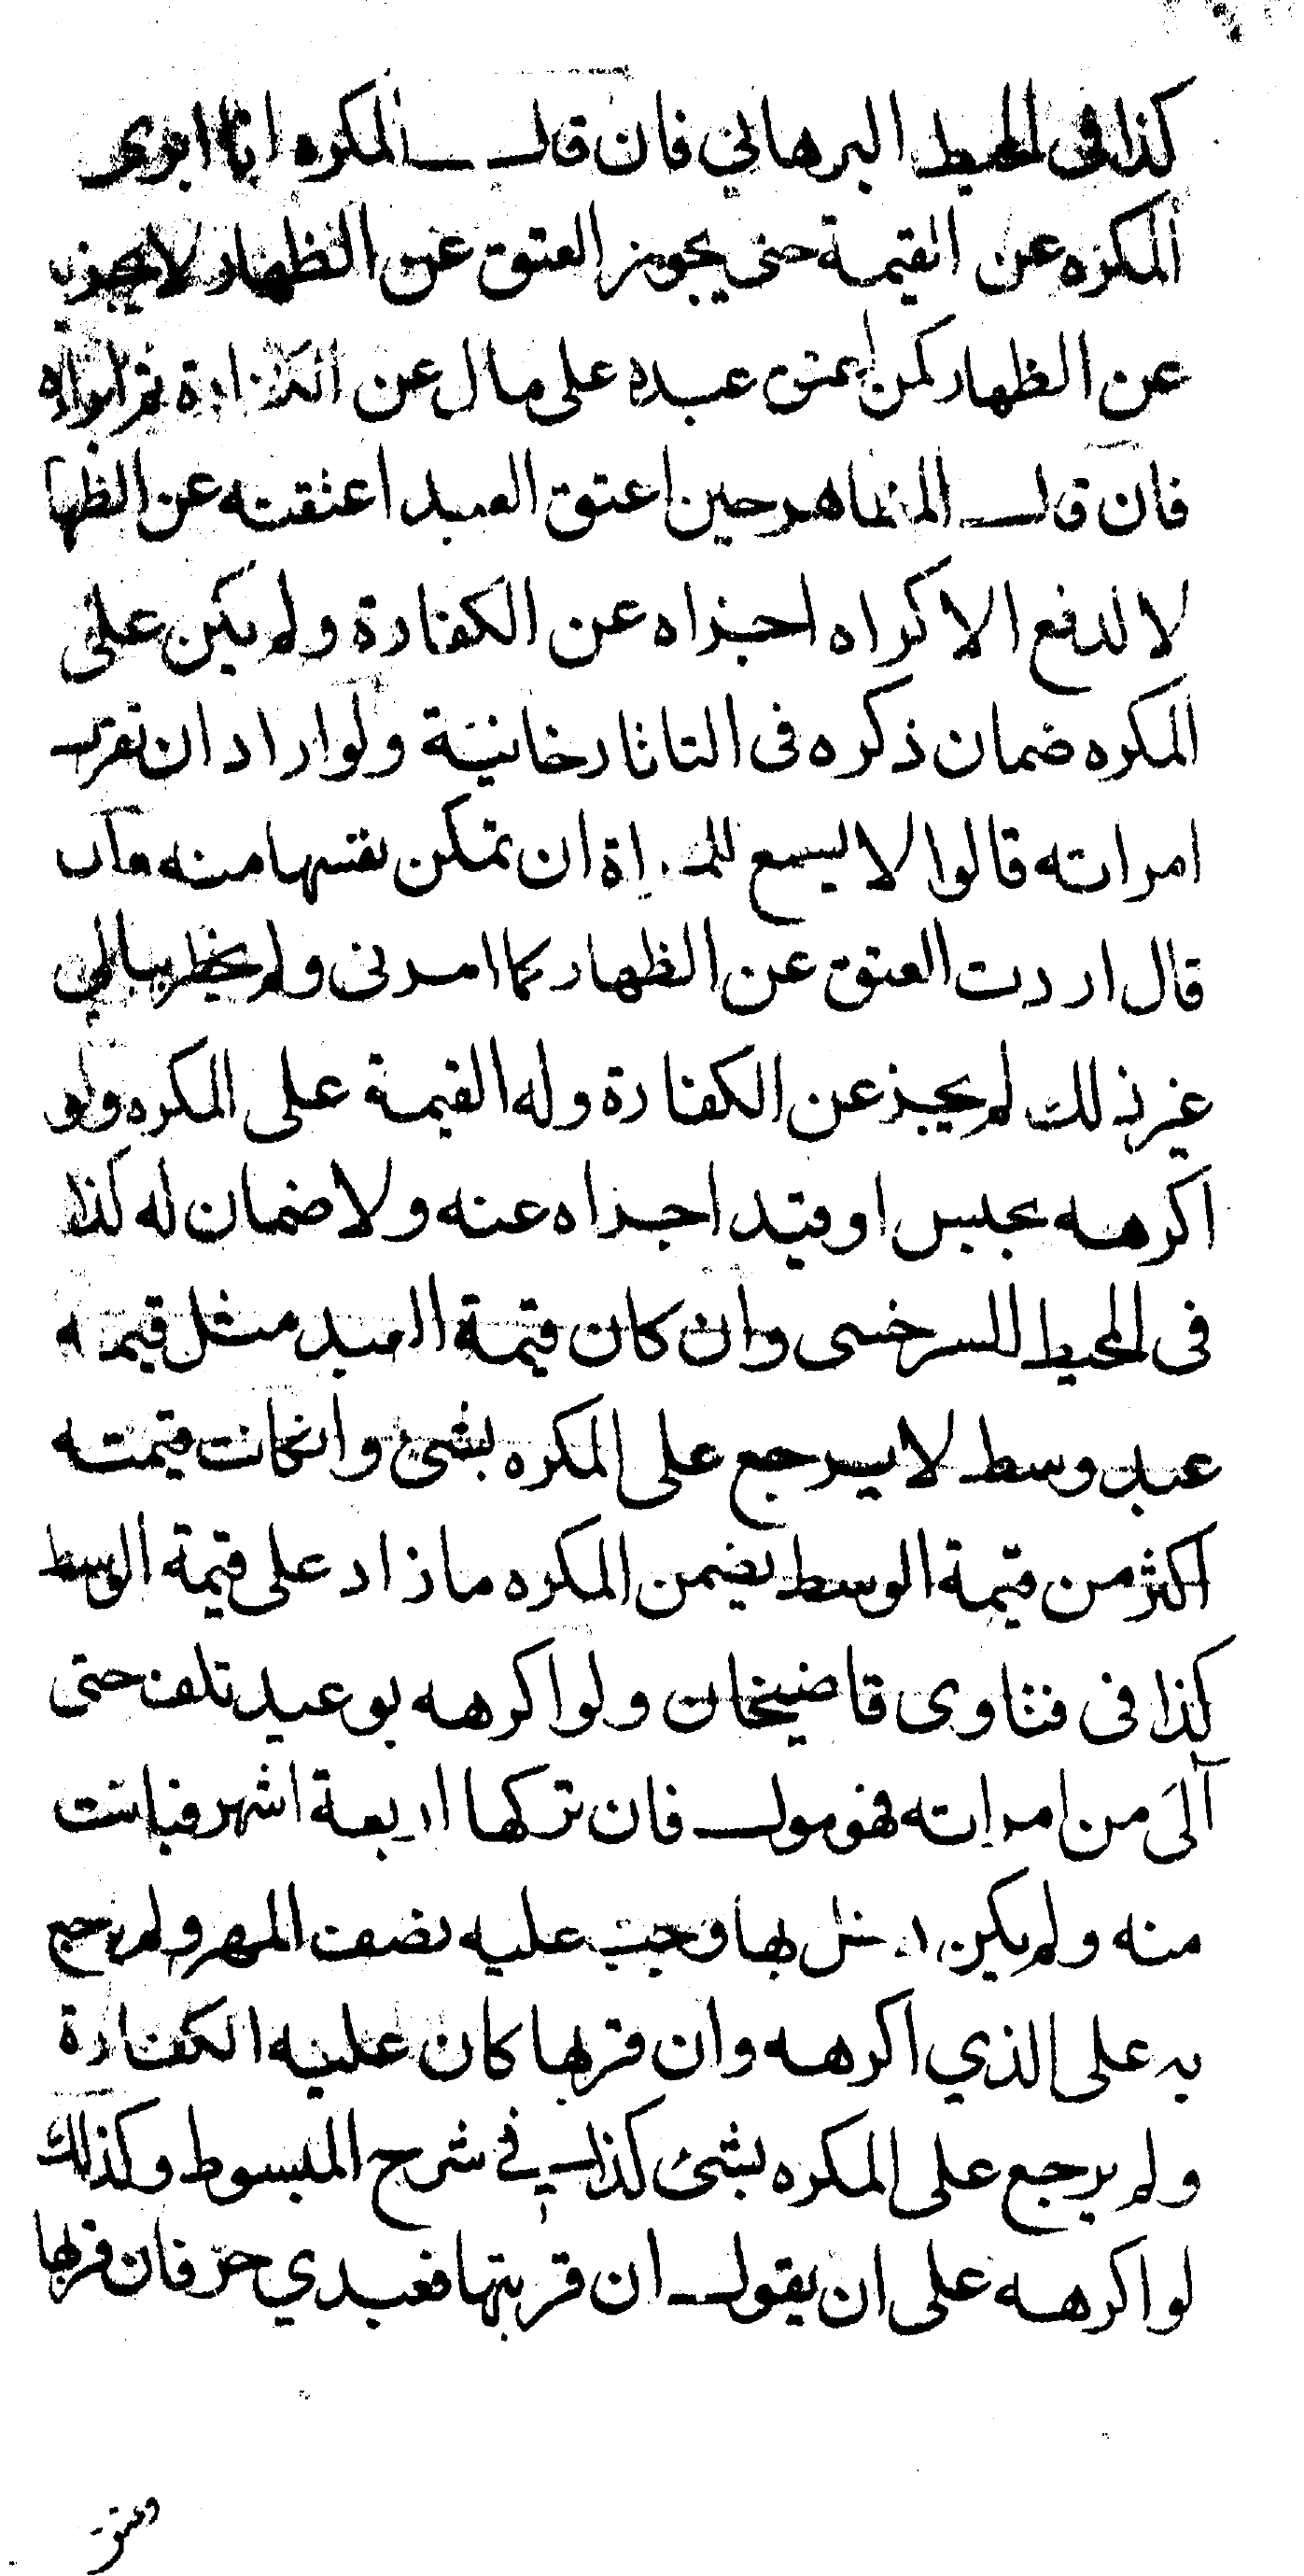 كذا فى المحيط البرهاني فان قال المكره انا ابرى
المكره عن القيمة حتى يجوز العتق عن الظهار لا يجوز
عن الظهار كمن اعتق عبده على مال عن الكفارة ثم ابراه
فان قال المظاهر حين اعتق العبد اعتقته عن الظها
لا لدفع الاكراه اجزاه عن الكفارة ولم يكن على
المكره ضمان ذكره فى التاتارخانية ولو اراد ان تقرب
امراته قالوا لا يسع للمراة ان تمكن نفسها منه
قال اردت العتق عن الظهار كما امرنى ولم يخطر ببالي
غير ذلك لم يجز عن الكفارة وله القيمة على المكره ولو
اكرهه بحبس او قيد اجزاه عنه ولا ضمان له كذا
فى المحيط للسرخسى وان كان قيمة العبد مثل قيمة
عبد وسط لا يرجع على المكره بشئ وانكانت قيمته
اكثر من قيمة الوسط يضمن المكره ما زاد على قيمة الوسط
كذا فى فتاوى قاضيخان ولو اكرهه بوعيد تلف حتى
آلَى من امراته فهو مول فان تركها اربعة اشهر فبانت
منه ولم يكن دخل بها وجب عليه نصف المهر ولم يرجع
به على الذي اكرهه وان قربها كان عليه الكفارة
ولم يرجع على المكره بشئ كذا في شرح المبسوط وكذلك
لو اكرهه على ان يقول ان قربتها فعبدي حر فان قربها
وعتق